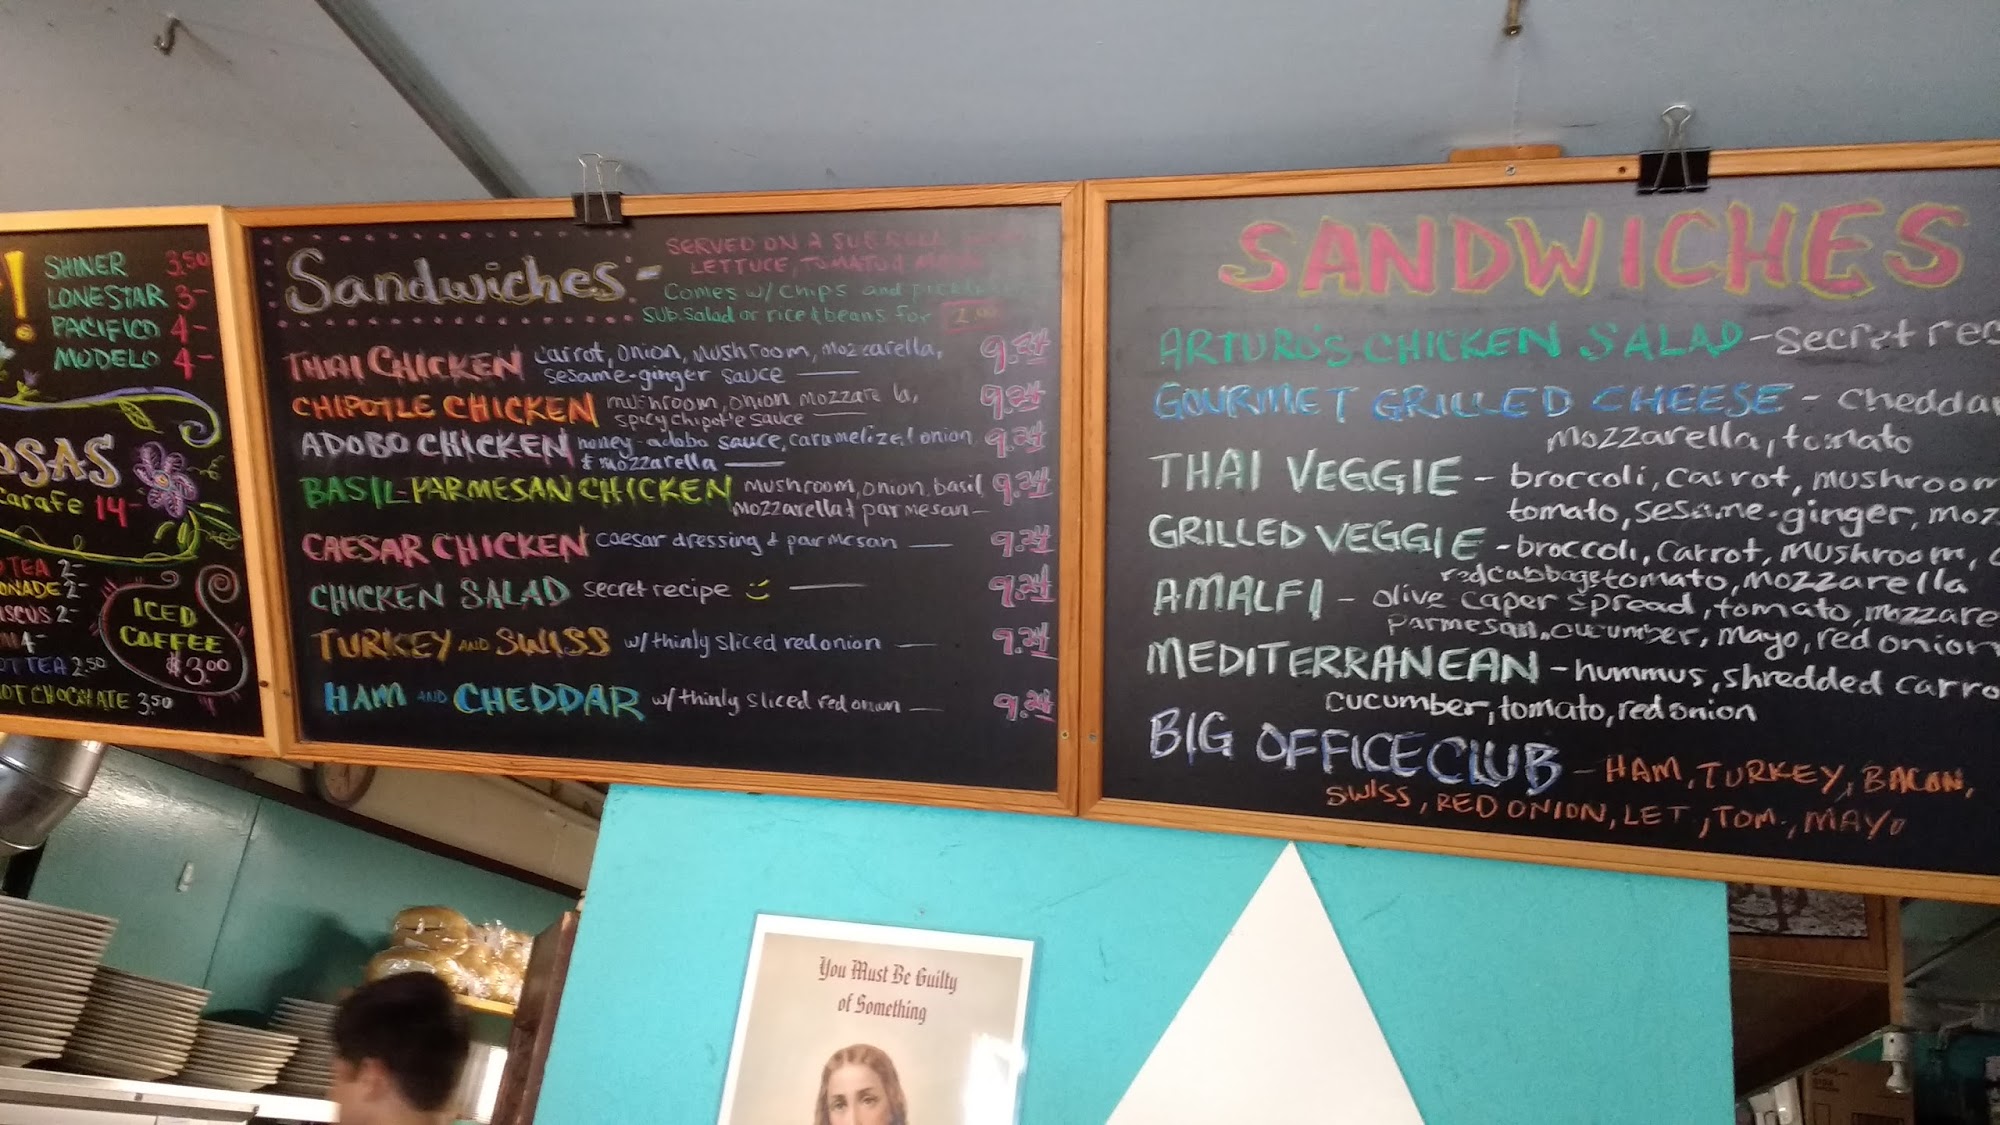 !
SHINER 3.50
LONESTAR 3-
PACIFICO 4-
MODELO 4-
OSAS
carafe 14-
TEA 2-
ONADE 2-
ISCUS 2-
4-
OT TEA 2.50
HOT CHOCOLATE 3.50
ICED
COFFEE
$3.00
Sandwiches -
SERVED ON A SUB ROLL
LETTUCE, TOMATO &
Comes w/ chips and
Sub. salad or rice & beans for 2.00
THAI CHICKEN carrot, onion, mushroom, mozzarella,
sesame-ginger sauce
CHIPOTLE CHICKEN mushroom, onion mozzarella,
spicy chipotle sauce
ADOBO CHICKEN honey-adobo sauce, caramelized onion
& mozzarella
BASIL-PARMESAN CHICKEN mushroom, onion, basil, 9.24
mozzarella & parmesan
CAESAR CHICKEN caesar dressing & parmesan 9.24
CHICKEN SALAD secret recipe 9.24
TURKEY AND SWISS w/ thinly sliced red onion 9.24
HAM AND CHEDDAR w/ thinly sliced red onion 9.24
SANDWICHES
ARTURO'S CHICKEN SALAD - secret rec
GOURMET GRILLED CHEESE - cheddar
mozzarella, tomato
THAI VEGGIE - broccoli, carrot, mushroom
tomato, sesame-ginger, moz
GRILLED VEGGIE - broccoli, carrot, mushroom,
red cabbage tomato, mozzarella
AMALFI - olive caper spread, tomato, mozzare
parmesan, cucumber, mayo, red onion
MEDITERRANEAN - hummus, shredded carro
cucumber, tomato, red onion
BIG OFFICE CLUB - HAM, TURKEY, BACON,
SWISS, RED ONION, LET, TOM., MAYO
You Must Be Guilty
of Something